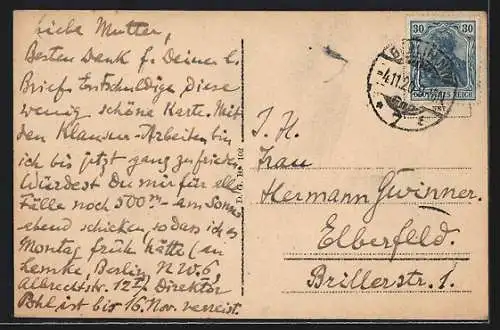 Liebe Mutter,
Besten Dank f. Deinen l.
Brief. Entschuldige, diese
wenig schöne Karte. Mit
den Klausur-Arbeiten bin
ich bis jetzt ganz zufrieden
Würdest Du mir für alle
Fälle noch 500 M am Sonn-
abend schicken, sodass ich es
Montag früh hätte (an
Lemke, Berlin N.W.6,
Albrechtstr. 12 Direktor
Bohl ist bis 16. Nov. verreist.
30 30
REICH
4.11.2
Frau
Hermann Gwinner.
Elberfeld.
Brillerstr. 1.